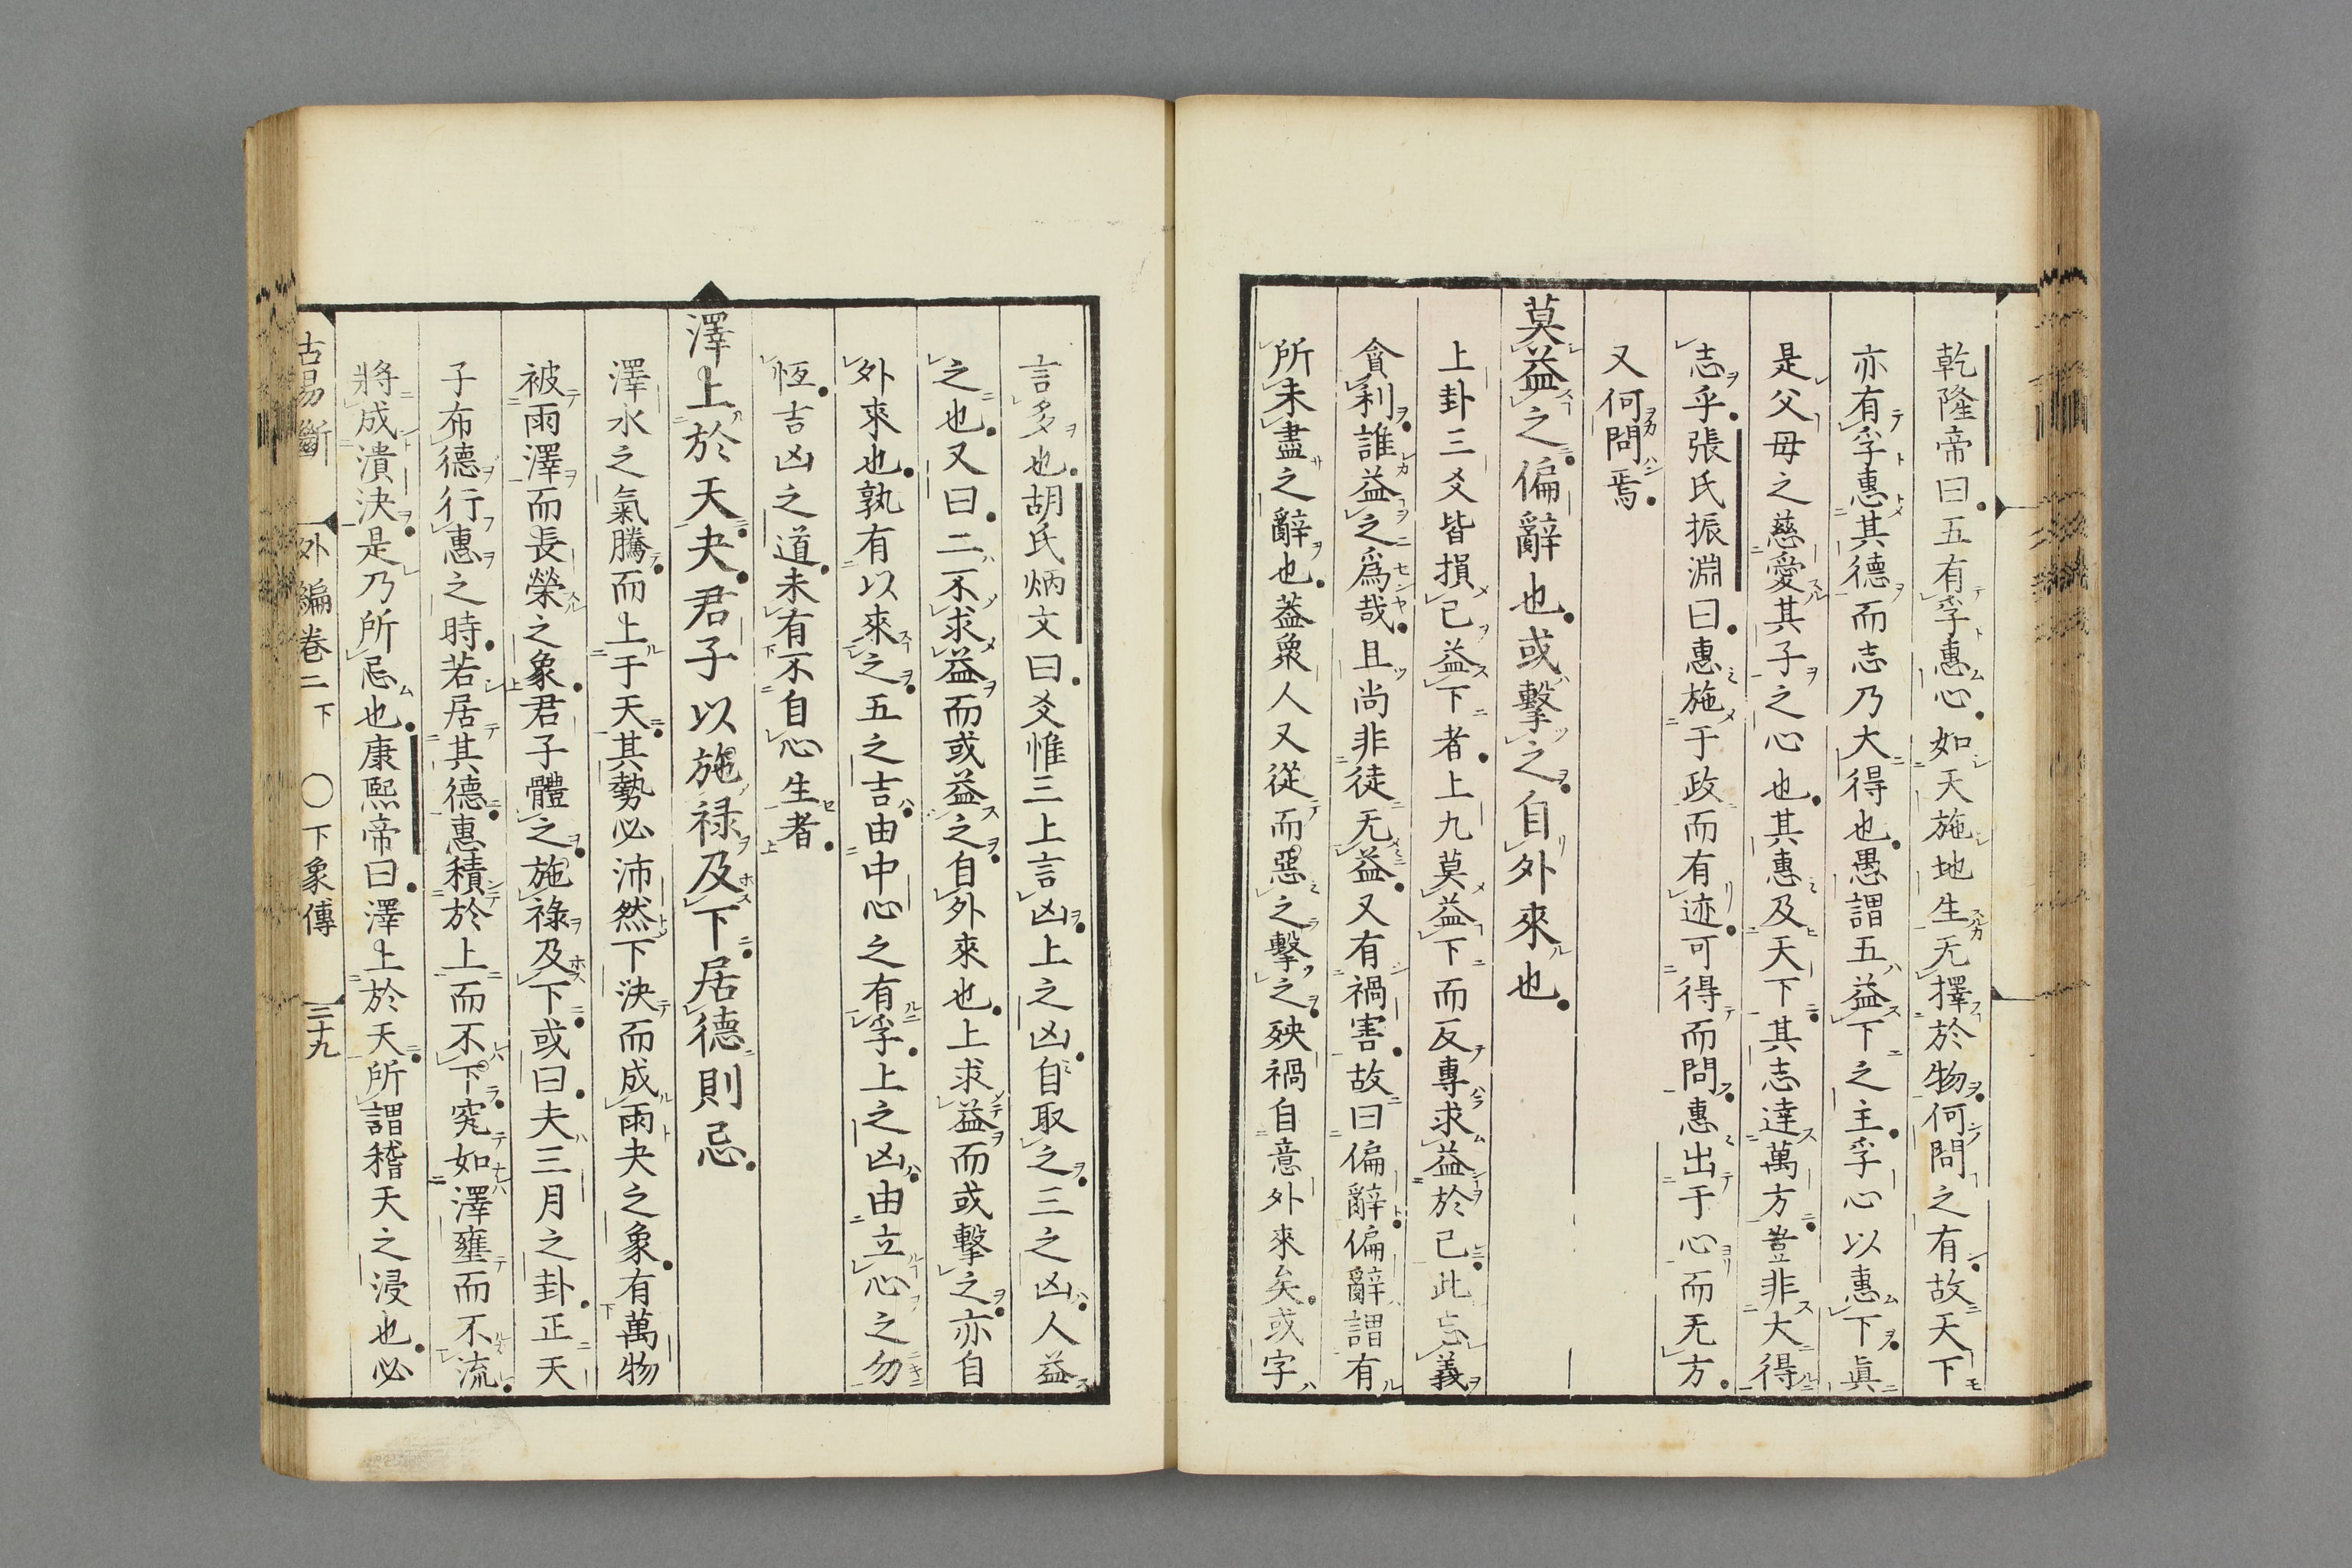 乾隆帝曰五有孚惠心如天施地生无擇於物何問之有故天下
亦有孚惠其德而志乃大得也愚謂五益下之主孚心以惠下眞
是父母之慈愛其子之心也其惠及天下其志達萬方豈非大得
志乎張氏振淵曰惠施于政而有迹可得而問惠出于心而无方
又何問焉
莫益之偏辭也或擊之自外來也
上卦三爻皆損已益下者上九莫益下而反專求益於己此忘義
貪利誰益之爲哉且尚非徒无益又有禍害故曰偏辭偏辭謂有
所未盡之辭也蓋衆人又從而惡之擊之殃禍自意外來矣或字
言多也胡氏炳文曰爻惟三上言凶上之凶自取之三之凶人益
之也又曰二不求益而或益之自外來也上求益而或擊之亦自
外來也孰有以來之五之吉由中心之有孚上之凶由立心之勿
恆吉凶之道未有不自心生者
澤上於天夬君子以施禄及下居德則忌
澤水之氣騰而上于天其勢必沛然下決而成雨夬之象有萬物
被雨澤而長榮之象君子體之施祿及下或曰夫三月之卦正天
子布德行惠之時若居其德惠積於上而不下究如澤壅而不流
將成潰決是乃所忌也康熙帝曰澤上於天所謂稽天之浸也必
古易斷　外編卷二下　〇下象傳　三十九